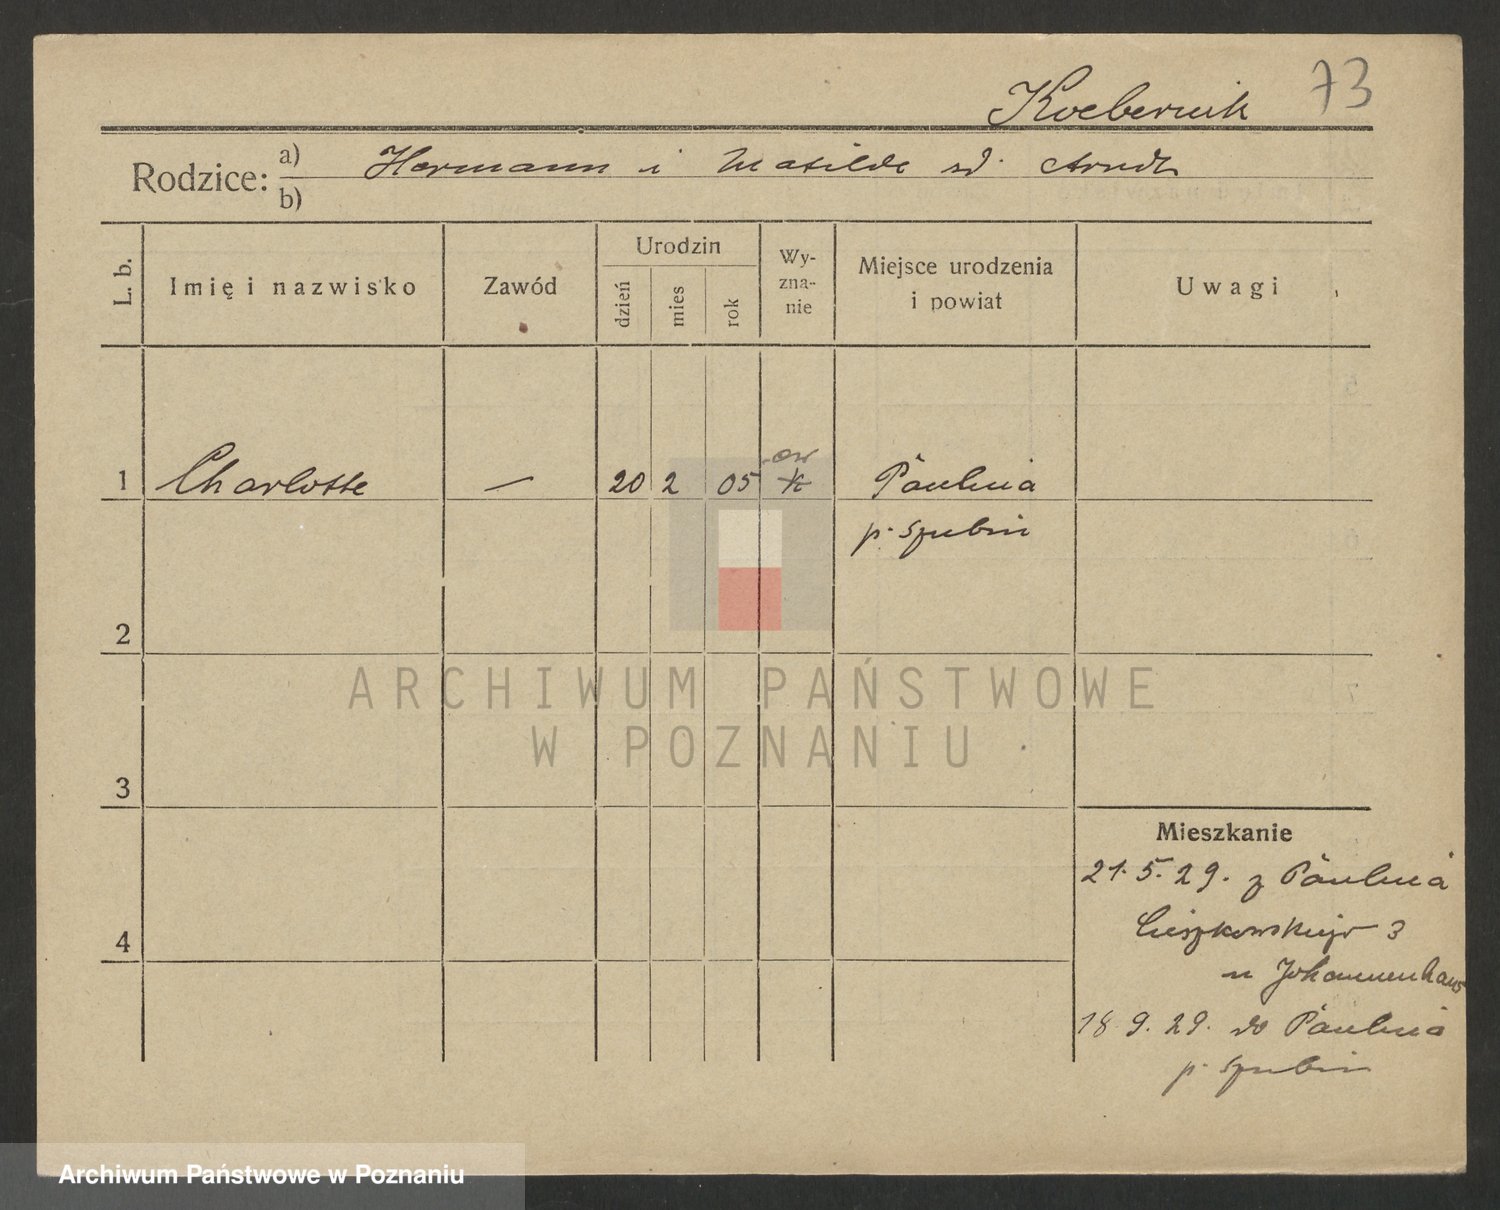 Koebernik 73
Rodzice: a) Hermann i Matilde zd. Arndt
b)
L. b. Imię i nazwisko Zawód Urodzin dzień mies rok Wy-zna-nie Miejsce urodzenia i powiat Uwagi
ew
1 Charlotte — 20 2 05 k Paulina
p. Szubin
2
ARCHIWUM PAŃSTWOWE
W POZNANIU
3
Mieszkanie
21. 5. 29. z Paulina
Cieszkowskiego 3
u Johannenhaus
4
18. 9. 29. do Paulina
p. Szubin
Archiwum Państwowe w Poznaniu